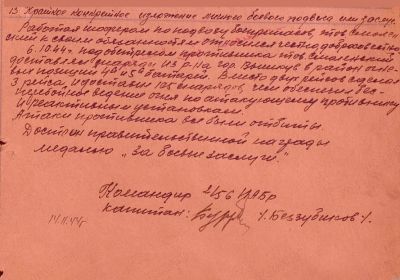 13. Краткое конкретное изложение личного боевого подвига или заслуг.
Работая шофером по подвозу боеприпасов, тов. Виленский
к своим обязанностям относится честно, добросовестно.
6.10.44г. под обстрелом противника тов Виленский
доставлял снаряды из р-на гор. в район огне-
вых позиций 4й и 5й батарей. Вместо двух рейсов сделал
3 рейса и доставил 125 снарядов, чем обеспечил бес-
перебойное ведение огня по атакующему противнику
и реактивным установкам.
Атаки противника все были отбиты.
Достоин правительственной награды
медалью „За боевые заслуги."
Командир 2/56
капитан: /. Беззубиков /.
14.11.44г